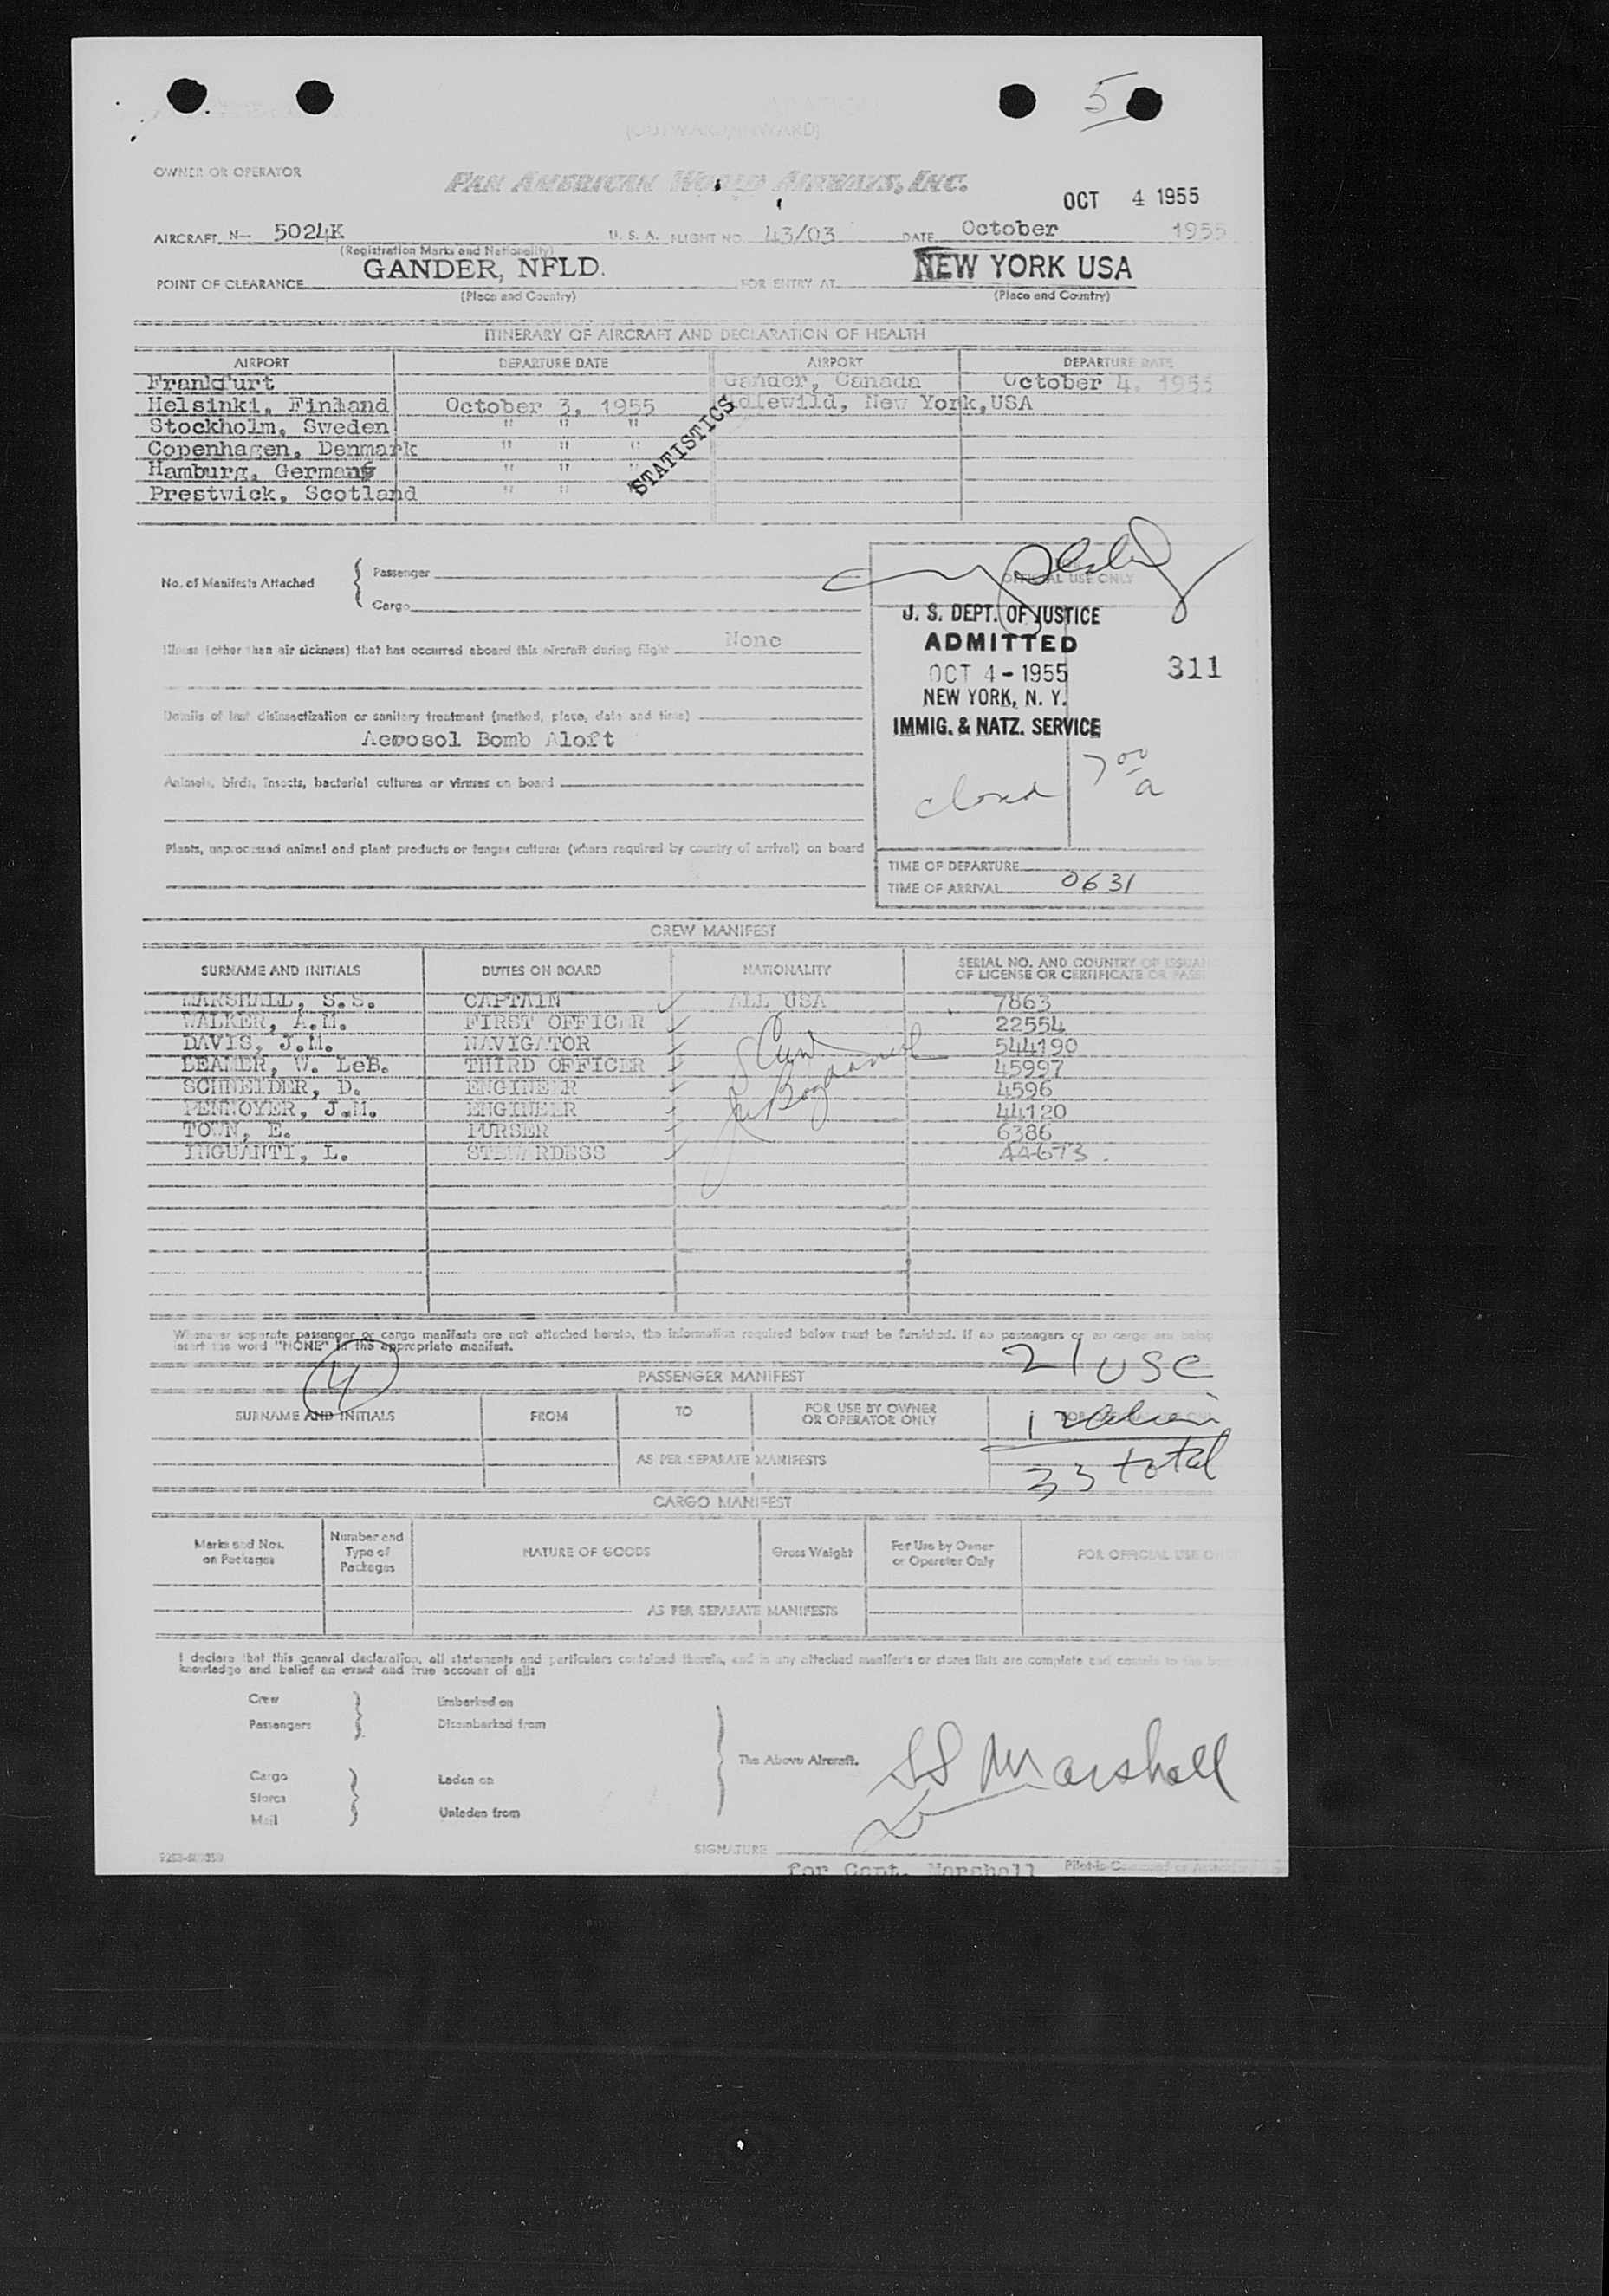 5
(OUTWARD/INWARD)
OWNER OR OPERATOR
PAN AMERICAN WORLD AIRWAYS, INC.
OCT 4 1955
AIRCRAFT N- 5024K U. S. A. FLIGHT NO. 43/03 DATE October 1955
(Registration Marks and Nationality)
POINT OF CLEARANCE GANDER, NFLD. FOR ENTRY AT NEW YORK USA
(Place and Country) (Place and Country)
ITINERARY OF AIRCRAFT AND DECLARATION OF HEALTH
AIRPORT DEPARTURE DATE AIRPORT DEPARTURE DATE
Frankfurt Gander, Canada October 4, 1955
Helsinki, Finland October 3, 1955 Idlewild, New York, USA
Stockholm, Sweden " " "
Copenhagen, Denmark " " "
Hamburg, Germany " " "
Prestwick, Scotland " " "
STATISTICS
No. of Manifests Attached { Passenger
Cargo
OFFICIAL USE ONLY
U. S. DEPT. OF JUSTICE
ADMITTED
OCT 4 - 1955
NEW YORK, N. Y.
IMMIG. & NATZ. SERVICE
311
Illness (other than air sickness) that has occurred aboard this aircraft during flight None
Details of last disinsectization or sanitary treatment (method, place, date and time)
Aerosol Bomb Aloft
closed 7 00 a
Animals, birds, insects, bacterial cultures or viruses on board
Plants, unprocessed animal and plant products or fungus cultures (where required by country of arrival) on board
TIME OF DEPARTURE
TIME OF ARRIVAL 0631
CREW MANIFEST
SURNAME AND INITIALS DUTIES ON BOARD NATIONALITY SERIAL NO. AND COUNTRY OF ISSUAN
OF LICENSE OR CERTIFICATE OR PASS
MARSHALL, S.S. CAPTAIN ALL USA 7863
WALKER, A.M. FIRST OFFICER 22554
DAVIS, J.M. NAVIGATOR 544190
BEAMER, W. LeB. THIRD OFFICER 45997
SCHNEIDER, D. ENGINEER 4596
PENNOYER, J.M. ENGINEER 44120
TOWN, E. PURSER 6386
INGUANTI, L. STEWARDESS 44673
Whenever separate passenger or cargo manifests are not attached hereto, the information required below must be furnished. If no passengers or no cargo are being
insert the word "NONE" in the appropriate manifest.
4
21 USC
PASSENGER MANIFEST
SURNAME AND INITIALS FROM TO FOR USE BY OWNER
OR OPERATOR ONLY
AS PER SEPARATE MANIFESTS
33 total
CARGO MANIFEST
Marks and Nos.
on Packages Number and
Type of
Packages NATURE OF GOODS Gross Weight For Use by Owner
or Operator Only FOR OFFICIAL USE ONLY
AS PER SEPARATE MANIFESTS
I declare that this general declaration, all statements and particulars contained therein, and in any attached manifests or stores lists are complete and contain to the best
knowledge and belief an exact and true account of all:
Crew Embarked on
Passengers Disembarked from
The Above Aircraft.
SS Marshall
Cargo Laden on
Stores
Mail Unladen from
SIGNATURE
for Capt. Marshall Pilot-in-Command or